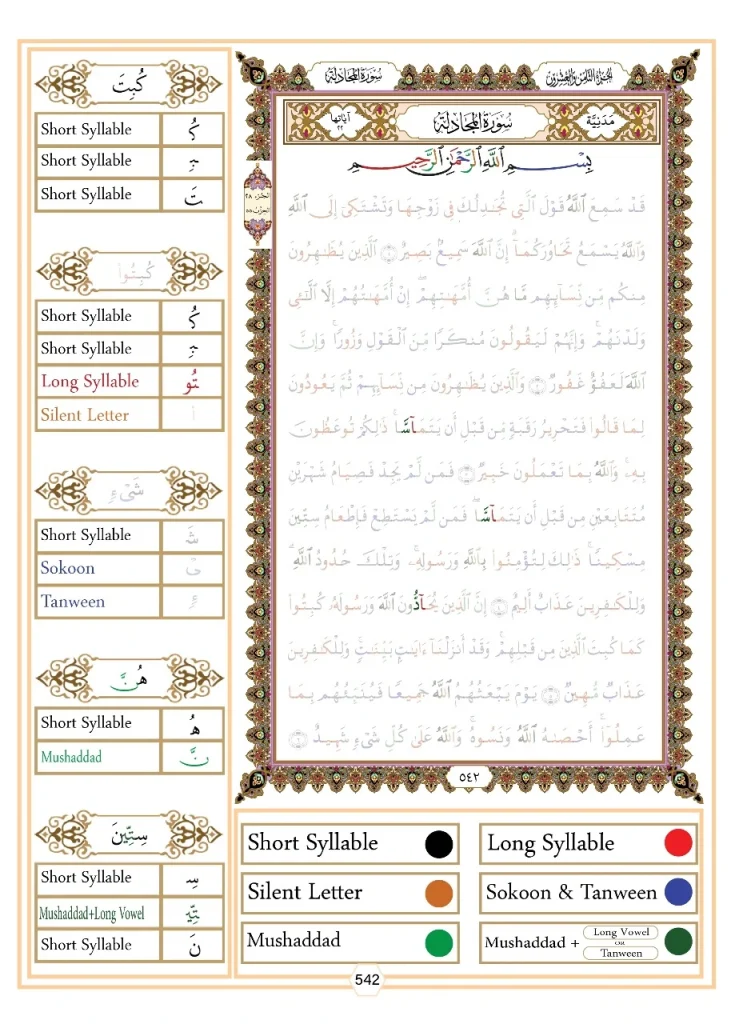 كُبِتَ
Short Syllable كُ
Short Syllable بِ
Short Syllable تَ
كُبِتُوا۟
Short Syllable كُ
Short Syllable بِ
Long Syllable تُو
Silent Letter ا
شَىْءٍ
Short Syllable شَ
Sokoon ىْ
Tanween ءٍ
هُنَّ
Short Syllable هُ
Mushaddad نَّ
سِتِّينَ
Short Syllable سِ
Mushaddad+Long Vowel تِّيـ
Short Syllable نَ
الجزء الثامن والعشرون سورة المجادلة
مَدَنِيَّة سُورَةُ المُجَادلَة آيَاتُها ٢٢
بِسْمِ ٱللَّهِ ٱلرَّحْمَٰنِ ٱلرَّحِيمِ
الجزء ٢٨
الحزب ٥٥
قَدْ سَمِعَ ٱللَّهُ قَوْلَ ٱلَّتِى تُجَٰدِلُكَ فِى زَوْجِهَا وَتَشْتَكِىٓ إِلَى ٱللَّهِ
وَٱللَّهُ يَسْمَعُ تَحَاوُرَكُمَآ إِنَّ ٱللَّهَ سَمِيعٌۢ بَصِيرٌ ١ ٱلَّذِينَ يُظَٰهِرُونَ
مِنكُم مِّن نِّسَآئِهِم مَّا هُنَّ أُمَّهَٰتِهِمْ إِنْ أُمَّهَٰتُهُمْ إِلَّا ٱلَّٰٓـِٔى
وَلَدْنَهُمْ وَإِنَّهُمْ لَيَقُولُونَ مُنكَرًا مِّنَ ٱلْقَوْلِ وَزُورًا وَإِنَّ
ٱللَّهَ لَعَفُوٌّ غَفُورٌ ٢ وَٱلَّذِينَ يُظَٰهِرُونَ مِن نِّسَآئِهِمْ ثُمَّ يَعُودُونَ
لِمَا قَالُوا۟ فَتَحْرِيرُ رَقَبَةٍ مِّن قَبْلِ أَن يَتَمَآسَّا ذَٰلِكُمْ تُوعَظُونَ
بِهِۦ وَٱللَّهُ بِمَا تَعْمَلُونَ خَبِيرٌ ٣ فَمَن لَّمْ يَجِدْ فَصِيَامُ شَهْرَيْنِ
مُتَتَابِعَيْنِ مِن قَبْلِ أَن يَتَمَآسَّا فَمَن لَّمْ يَسْتَطِعْ فَإِطْعَامُ سِتِّينَ
مِسْكِينًا ذَٰلِكَ لِتُؤْمِنُوا۟ بِٱللَّهِ وَرَسُولِهِۦ وَتِلْكَ حُدُودُ ٱللَّهِ
وَلِلْكَٰفِرِينَ عَذَابٌ أَلِيمٌ ٤ إِنَّ ٱلَّذِينَ يُحَآدُّونَ ٱللَّهَ وَرَسُولَهُۥ كُبِتُوا۟
كَمَا كُبِتَ ٱلَّذِينَ مِن قَبْلِهِمْ وَقَدْ أَنزَلْنَآ ءَايَٰتٍۭ بَيِّنَٰتٍ وَلِلْكَٰفِرِينَ
عَذَابٌ مُّهِينٌ ٥ يَوْمَ يَبْعَثُهُمُ ٱللَّهُ جَمِيعًا فَيُنَبِّئُهُم بِمَا
عَمِلُوٓا۟ أَحْصَىٰهُ ٱللَّهُ وَنَسُوهُ وَٱللَّهُ عَلَىٰ كُلِّ شَىْءٍ شَهِيدٌ ٦
٥٤٢
Short Syllable
Long Syllable
Silent Letter
Sokoon & Tanween
Mushaddad
Mushaddad + Long Vowel OR Tanween
542